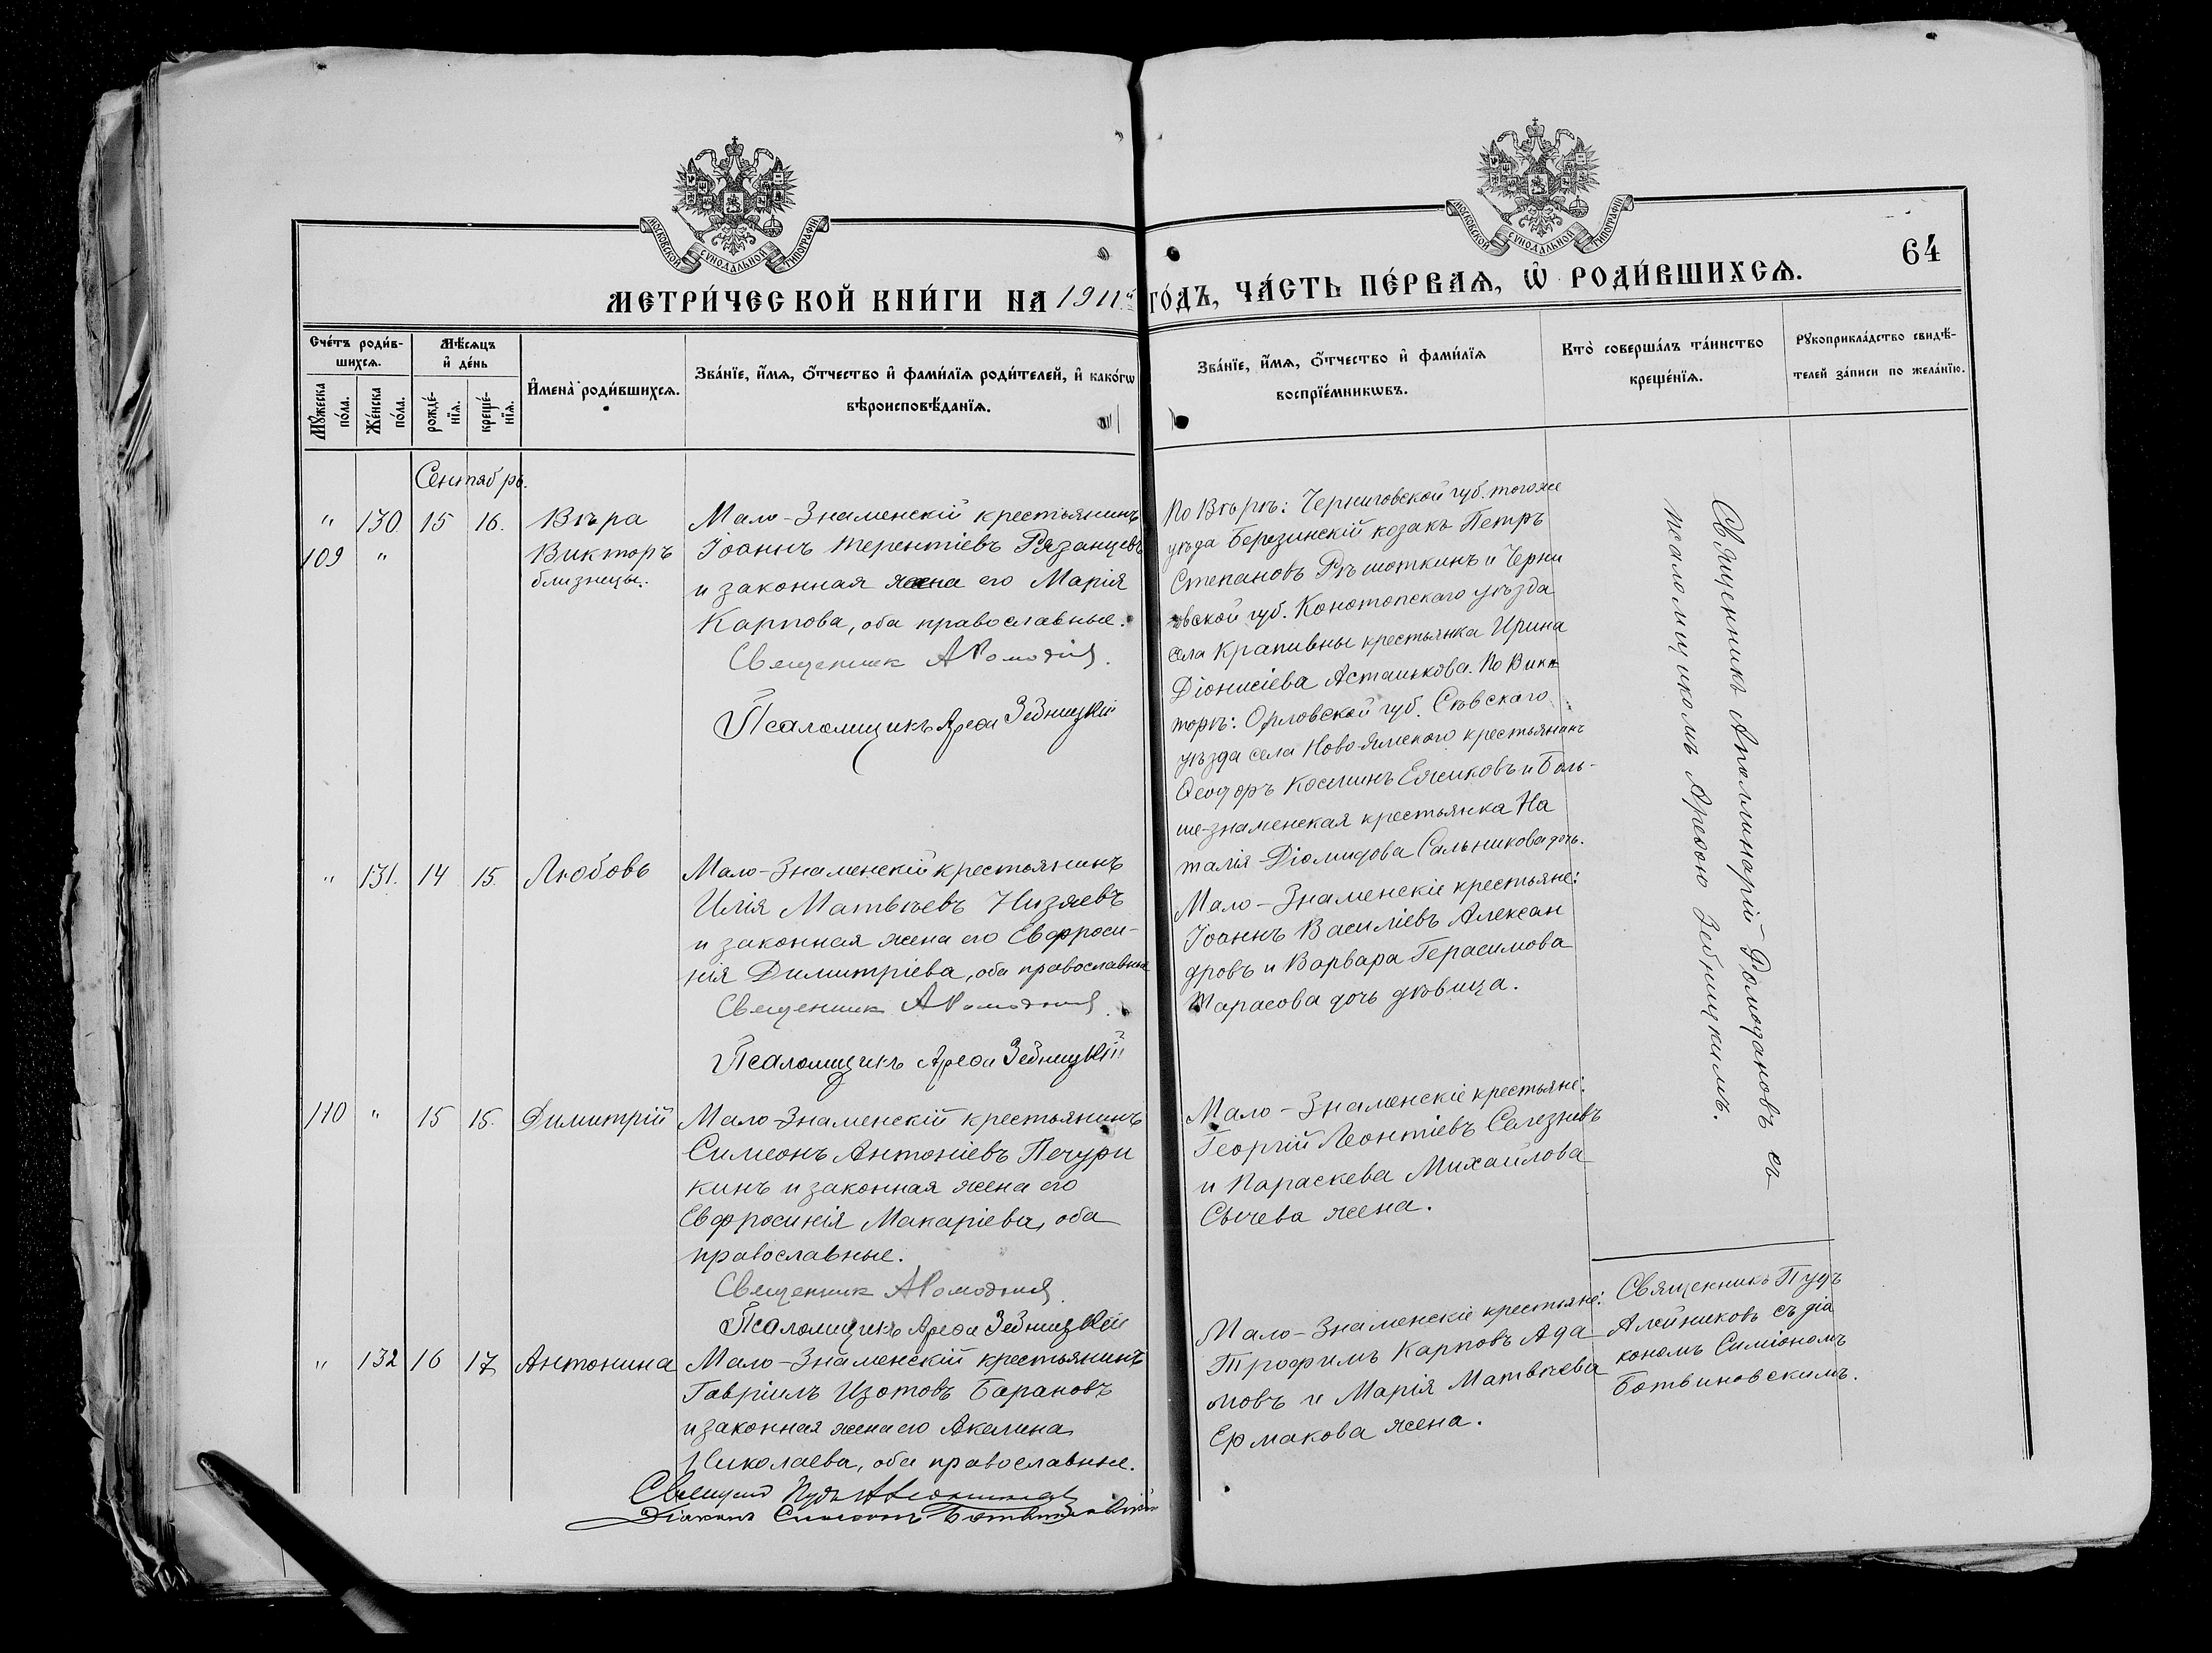 МОСКОВСКОЙ СѴНОДАЛЬНОЙ ТИПОГРАФІИ
МОСКОВСКОЙ СѴНОДАЛЬНОЙ ТИПОГРАФІИ
64
МЕТРИ́ЧЕСКОЙ КНИ́ГИ НА 1911й ГО́ДЪ, ЧА́СТЬ ПЕ́РВАѦ, Ѽ РОДИ́ВШИХСѦ.
Сче́тъ роди́в-
шихсѧ.
Мѣ́сѧцъ
и҆ де́нь
Мꙋ́жеска
по́ла.
Же́нска
по́ла.
рожде́-
нїѧ.
креще́-
нїѧ.
И҆мена̀ роди́вшихсѧ.
Зва́нїе, и҆́мѧ, ѻ҆́тчество и҆ фами́лїѧ роди́телей, и҆ како́гѡ
вѣроисповѣ́данїѧ.
Зва́нїе, и҆́мѧ, ѻ҆́тчество и҆ фами́лїѧ
воспрїе́мникѡвъ.
Кто̀ соверша́лъ та́инство
креще́нїѧ.
Рꙋкоприкла́дство свидѣ́-
телей за́писи по жела́нїю.
Сентябрь.
" 130 15 16. Вѣра
109 " Викторъ
близнецы.
Мало-Знаменскій крестьянинъ
Іоаннъ Терентіевъ Рязанцевъ
и законная жена его Марія
Карпова, оба православные.
Священник А Ромодан
Псаломщикъ Арефа Зебницкій
По Вѣрѣ: Черниговской губ. тогоже
уѣзда Березинскій козакъ Петръ
Степановъ Рѣшоткинъ и Черни
овской губ. Конотопскаго уѣзда
села Крапивны крестьянка Ирина
Діонисіева Асташкова. По Вик
торѣ: Орловской губ. Сѣвскаго
уѣзда села Ново-Ямского крестьянинъ
Ѳеодоръ Косминъ Ежиковъ и Боль-
ше-знаменская крестьянка На
талія Діомидова Сальникова дочь.
Священникъ Аполлинарій Ромодановъ съ
псаломщикомъ Арефою Зебницкимъ.
" 131. 14 15. Любовь
Мало-Знаменскій крестьянинъ
Илія Матвѣевъ Низяевъ
и законная жена его Евфроси-
нія Димитріева, оба православные
Священник А Ромодан
Псаломщикъ Арефа Зебницкій
Мало-Знаменскіе крестьяне:
Іоаннъ Василіевъ Алексан
дровъ и Варвара Герасимова
Тарасова дочь дѣвица.
110 " 15 15. Димитрій
Мало-Знаменскій крестьянинъ
Симеонъ Антоніевъ Печури
кинъ и законная жена его
Евфросинія Макаріева, оба
православные.
Священник А Ромодан
Псаломщикъ Арефа Зебницкій
Мало-Знаменскіе крестьяне:
Георгій Леонтіевъ Селезневъ
и Параскева Михайлова
Сычева жена.
" 132 16 17 Антонина
Мало-Знаменскій крестьянинъ
Гавріилъ Изотовъ Барановъ
и законная жена его Акелина
Николаева, оба православные.
Священ Пудъ Алейников
Діаконъ Симеонъ Ботвиновскій
Мало-Знаменскіе крестьяне:
Трофимъ Карповъ Ада
мовъ и Марія Матвѣева
Ермакова жена.
Священникъ Пудъ
Алейниковъ съ діа
кономъ Симіономъ
Ботвиновскимъ.